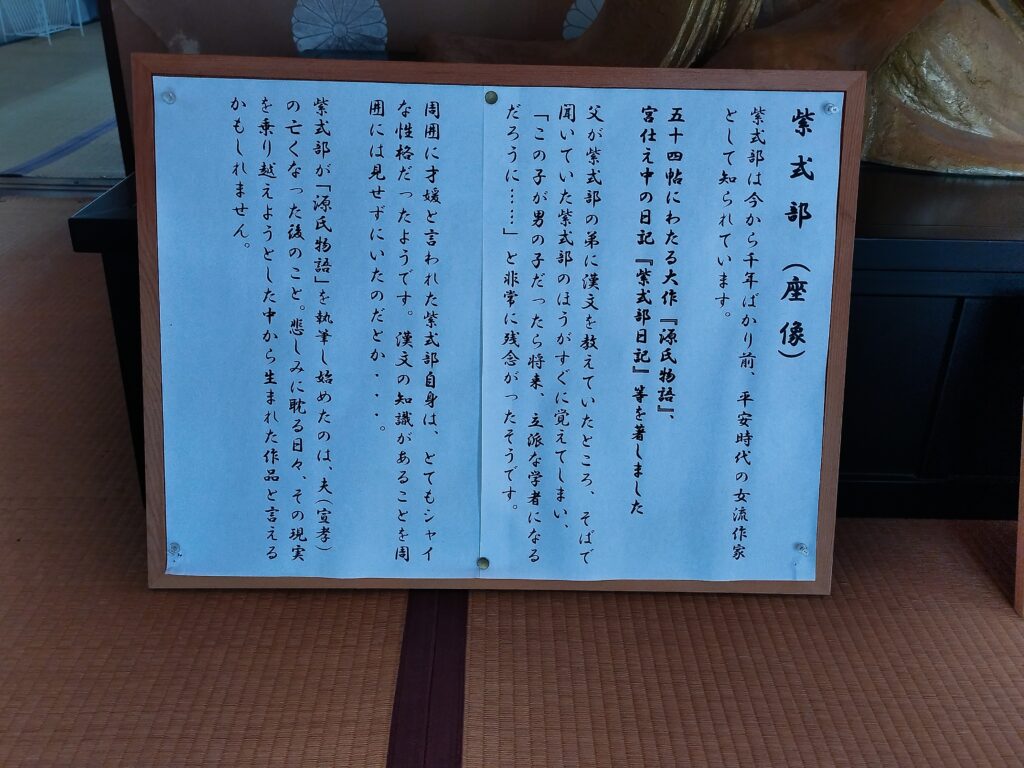 紫式部（座像）
紫式部は今から千年ばかり前、平安時代の女流作家
として知られています。
五十四帖にわたる大作『源氏物語』、
宮仕え中の日記『紫式部日記』等を著しました
父が紫式部の弟に漢文を教えていたところ、そばで
聞いていた紫式部のほうがすぐに覚えてしまい、
「この子が男の子だったら将来、立派な学者になる
だろうに……」と非常に残念がったそうです。
周囲に才媛と言われた紫式部自身は、とてもシャイ
な性格だったようです。漢文の知識があることを周
囲には見せずにいたのだとか・・・。
紫式部が「源氏物語」を執筆し始めたのは、夫（宣孝）
の亡くなった後のこと。悲しみに耽る日々、その現実
を乗り越えようとした中から生まれた作品と言える
かもしれません。